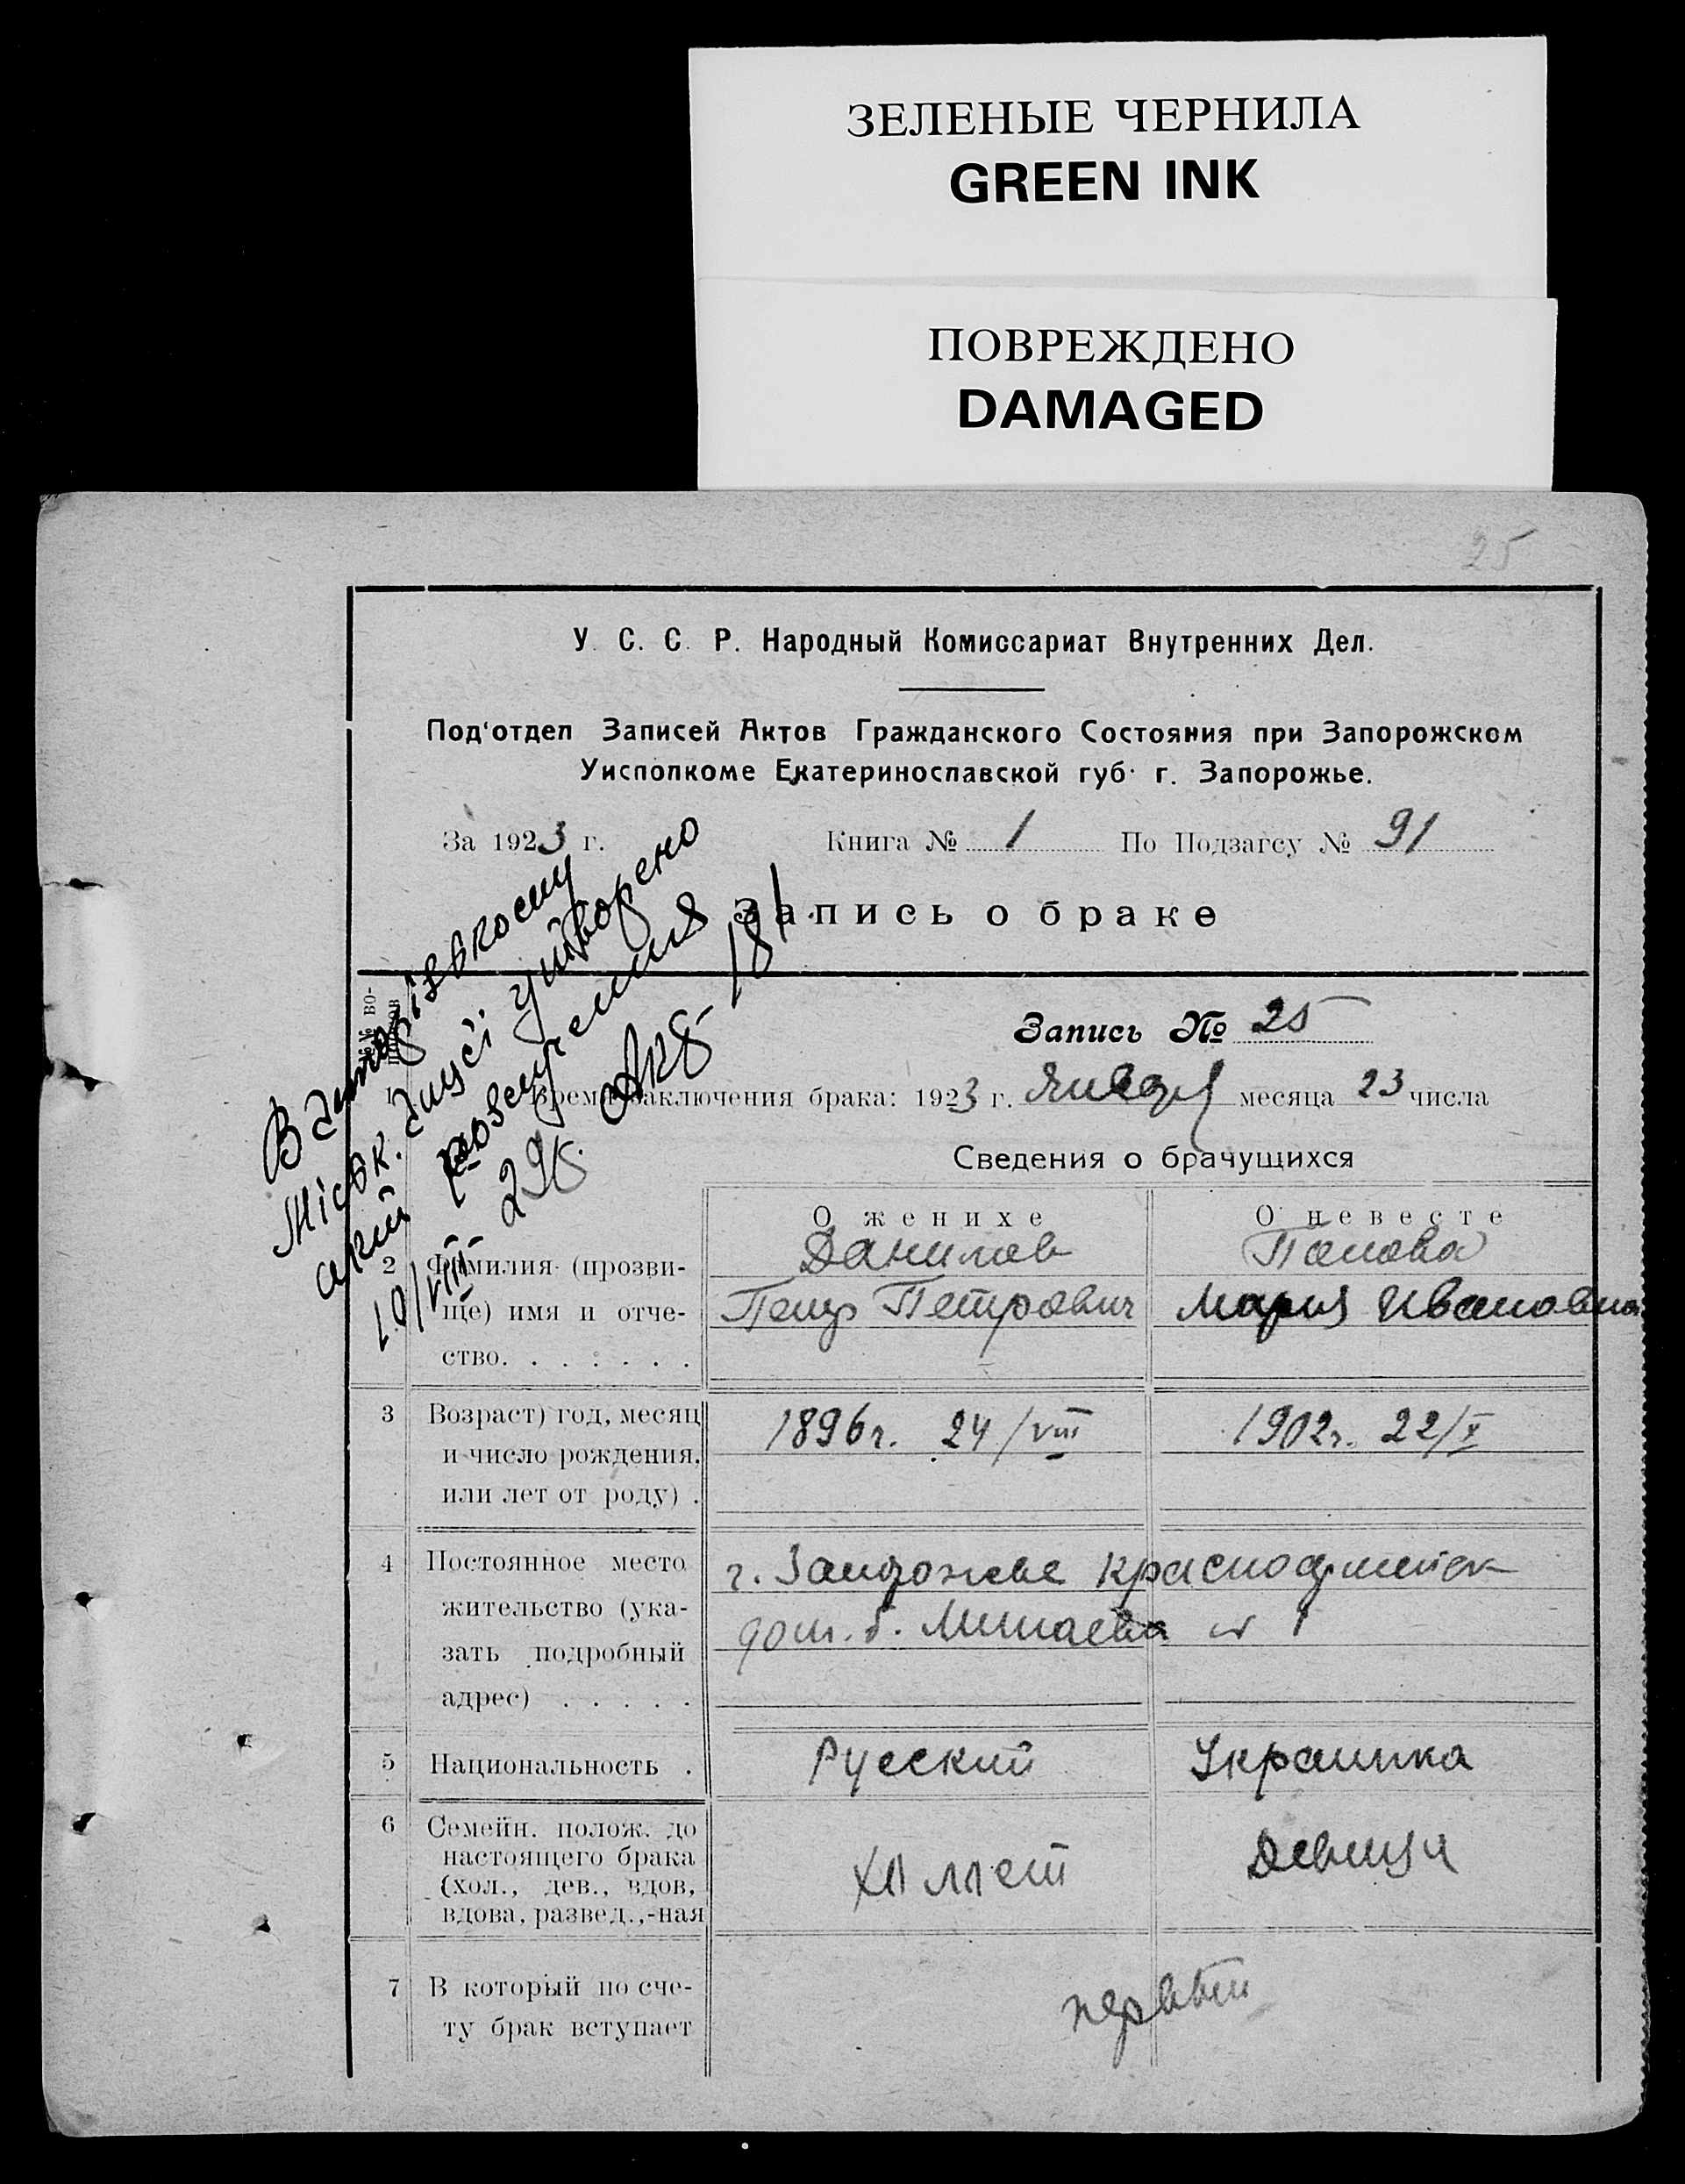 ЗЕЛЕНЫЕ ЧЕРНИЛА
GREEN INK
ПОВРЕЖДЕНО
DAMAGED
25
У. С. С. Р. Народный Комиссариат Внутренних Дел.
Под'отдел Записей Актов Гражданского Состояния при Запорожском
Уисполкоме Екатеринославской губ. г. Запорожье.
За 1923 г. Книга № 1 По Подзагсу № 91
Запись о браке
В Запорізькому
Міськ. Загсі утворено
акт розлучення
10/VIII 29 г. Акт 181
№№ во-
просов
Запись № 25
1 Время заключения брака: 1923 г. Января месяца 23 числа
Сведения о брачущихся
О женихе О невесте
2 Фамилия (прозви- Данилов
ще) имя и отче- Петр Петрович Мария Ивановна
ство. . . . . . .
3 Возраст) год, месяц 1896 г. 24/VIII 1902 г. 22/V
и число рождения,
или лет от роду) .
4 Постоянное место г. Запорожье Красноармейск
жительство (ука- дом. б. Минаева № 1
зать подробный
адрес) . . . . .
5 Национальность . Русский Украинка
6 Семейн. полож. до
настоящего брака Девица
(хол., дев., вдов, Холост
вдова, развед.,-ная
7 В который по сче- первый
ту брак вступает